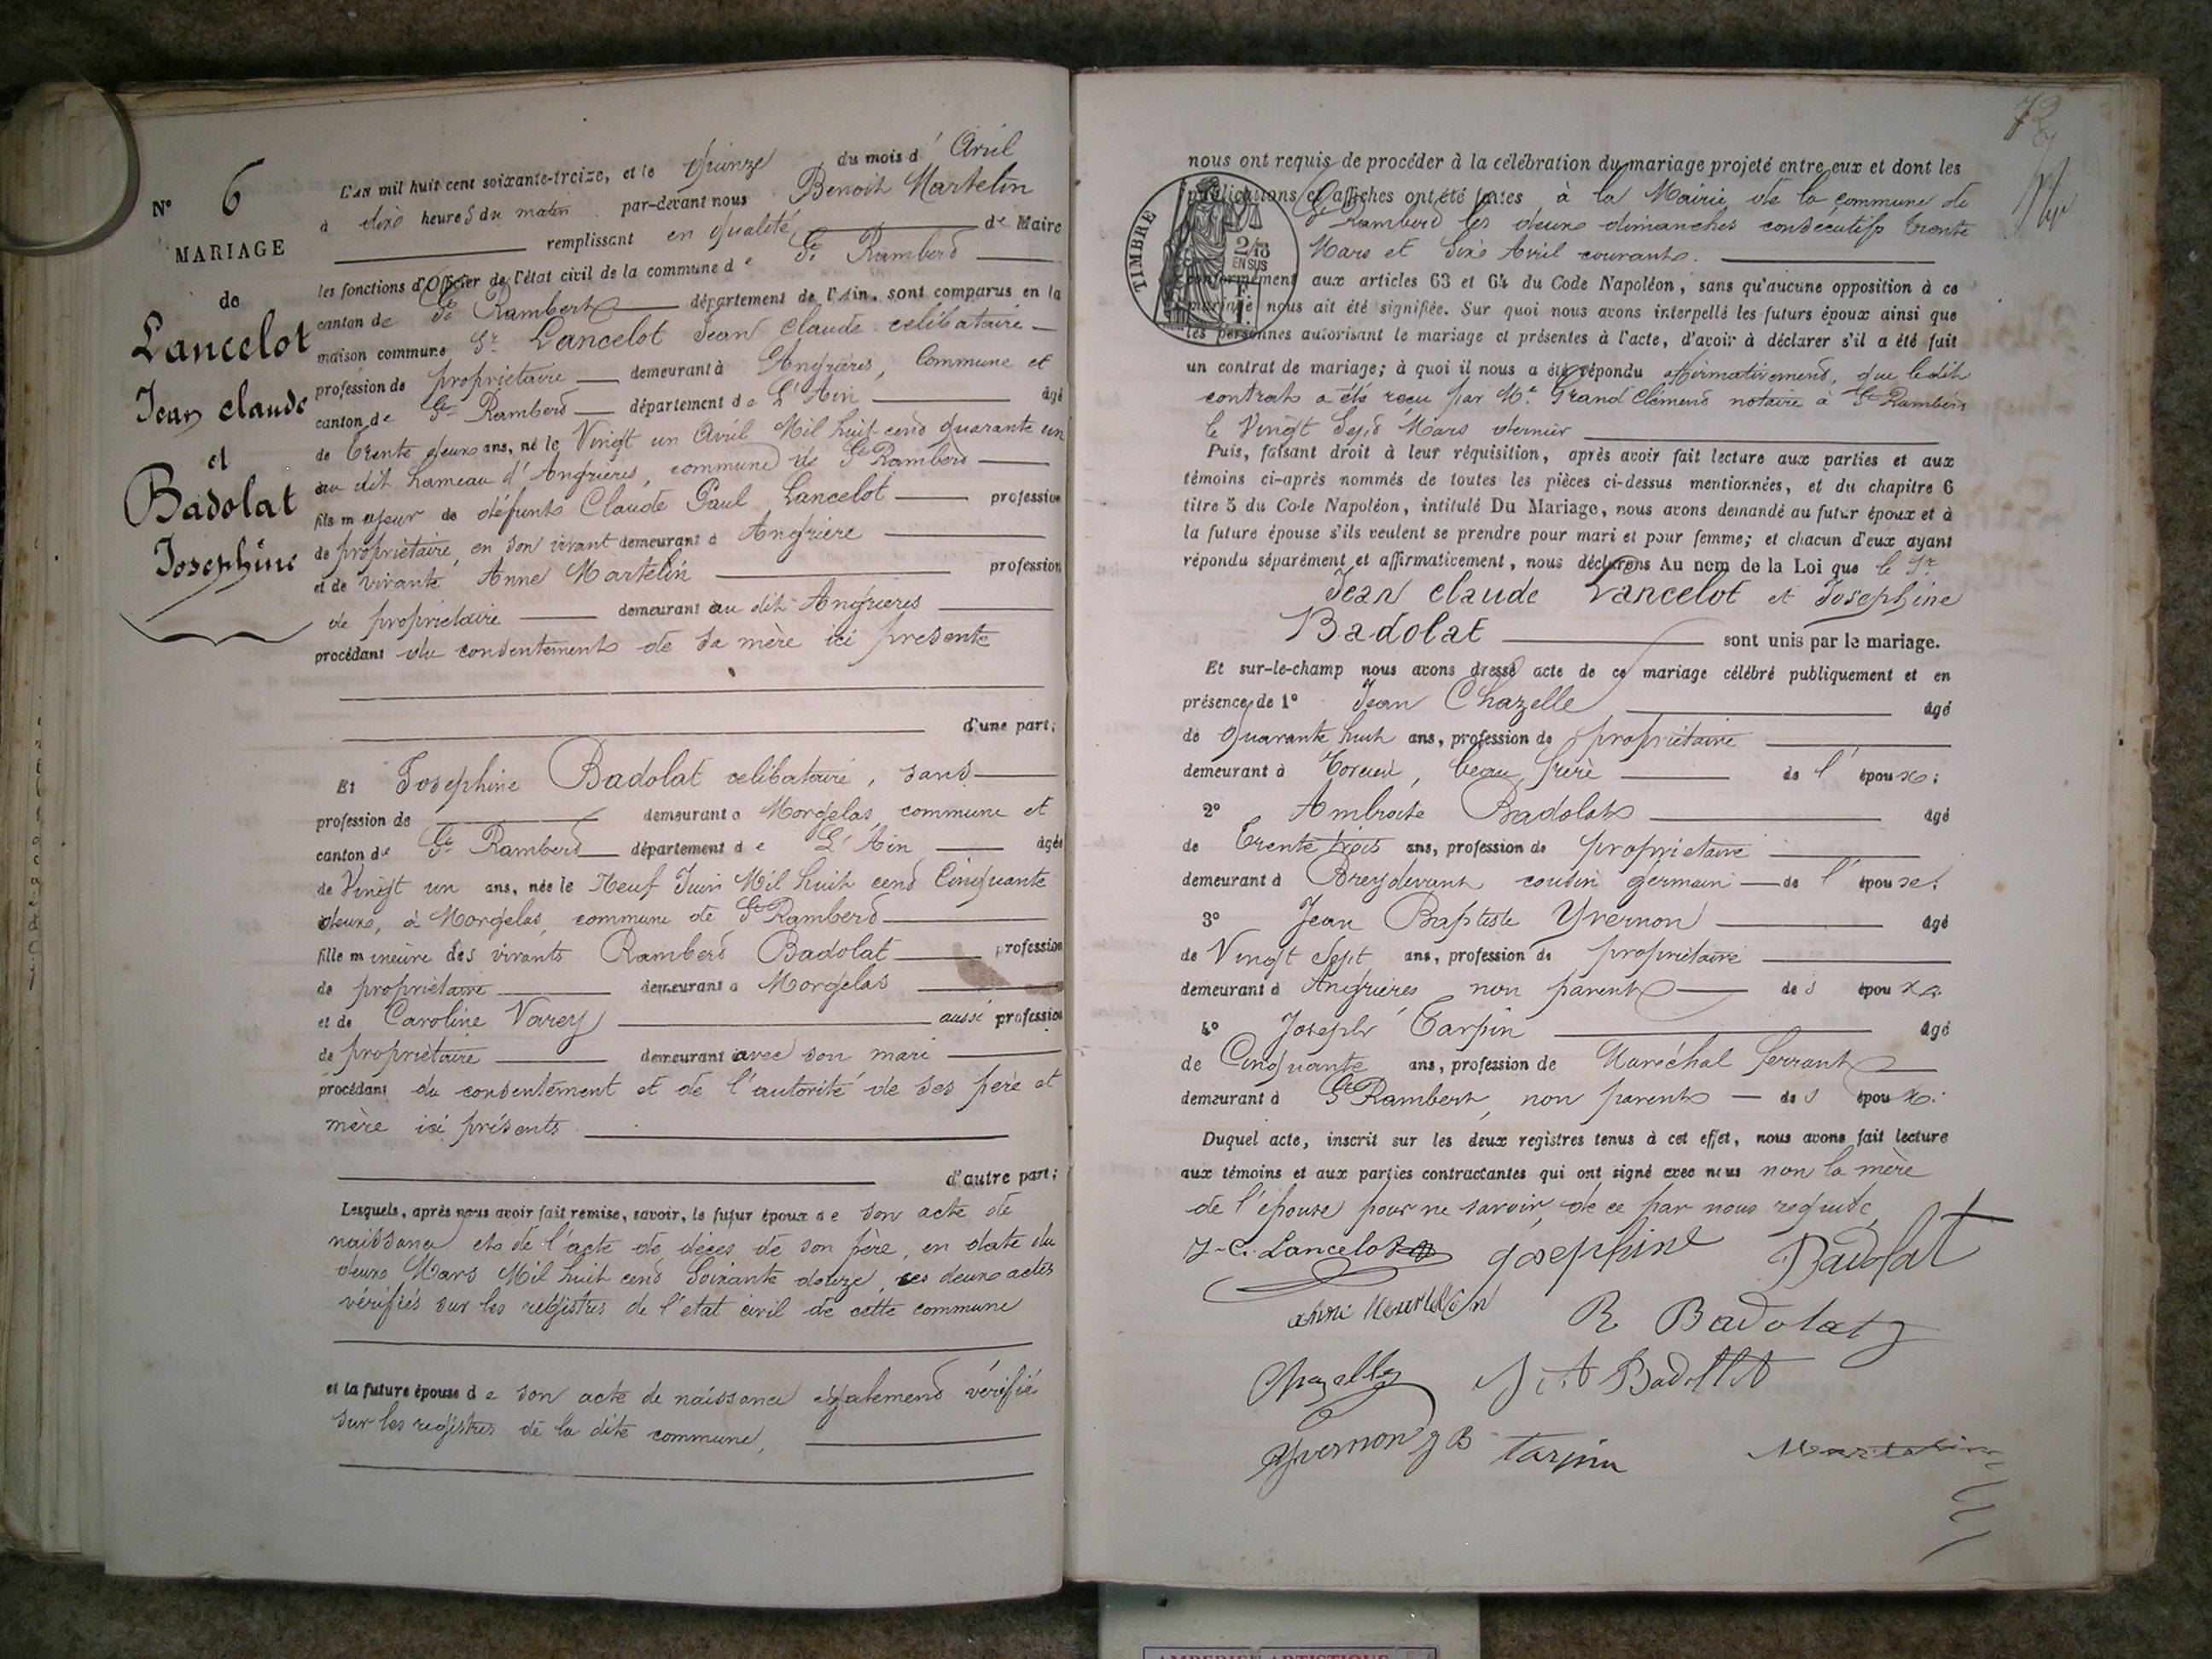 N° 6
MARIAGE
de
Lancelot
Jean claude
et
Badolat
Josephine
L'an mil huit cent soixante-treize, et le Quinze du mois d' Avril
à dixe heures du matin par-devant nous Benoit Martelin
remplissant en qualité de Maire
les fonctions d'Officier de l'état civil de la commune de St Rambert
canton de St Rambert département de l'Ain. sont comparus en la
maison commune Sr Lancelot Jean Claude celibataire
profession de propriétaire demeurant à Angrières, Commune et
canton de St Rambert département de L'Ain âgé
de Trente deux ans, né le Vingt un Avril Mil huit cent quarante un
au dit hameau d'Angrières, commune de St Rambert
fils majeur de défunt Claude Paul Lancelot profession
de propriétaire, en son vivant demeurant à Angriere
et de vivante Anne Martelin profession
de propriétaire demeurant au dit Angrieres
procédant du consentement de sa mère ici presente
d'une part;
Et Josephine Badolat celibataire, sans
profession de demeurant à Morgelas, commune et
canton de St Rambert département de L'Ain âgée
de Vingt un ans, née le Neuf Juin Mil huit cent Cinquante
deux, à Morgelas, commune de St Rambert
fille mineure des vivants Rambert Badolat profession
de propriétaire demeurant à Morgelas
et de Caroline Varey aussi profession
de propriétaire demeurant avec son mari
procédant du consentement et de l'autorité de ses père et
mère ici présents
d'autre part;
Lesquels, après nous avoir fait remise, savoir, le futur époux de son acte de
naissance et de l'acte de décès de son père, en date du
deux Mars Mil huit cent Soixante douze, ces deux actes
vérifiés sur les registres de l'état civil de cette commune
et la future épouse de son acte de naissance également vérifié
sur les registres de la dite commune,
72
nous ont requis de procéder à la célébration du mariage projeté entre eux et dont les
publications et affiches ont été faites à la Mairie de la commune de
St Rambert les deux dimanches consécutifs trente
Mars et Six Avril courant.
TIMBRE
2/10
EN SUS
1 F.
conformément aux articles 63 et 64 du Code Napoléon, sans qu'aucune opposition à ce
mariage nous ait été signifiée. Sur quoi nous avons interpellé les futurs époux ainsi que
les personnes autorisant le mariage et présentes à l'acte, d'avoir à déclarer s'il a été fait
un contrat de mariage; à quoi il nous a été répondu affirmativement, que ledit
contrat a été reçu par Me Grand Clément notaire à St Rambert
le Vingt Sept Mars dernier
Puis, faisant droit à leur réquisition, après avoir fait lecture aux parties et aux
témoins ci-après nommés de toutes les pièces ci-dessus mentionnées, et du chapitre 6
titre 5 du Code Napoléon, intitulé Du Mariage, nous avons demandé au futur époux et à
la future épouse s'ils veulent se prendre pour mari et pour femme; et chacun d'eux ayant
répondu séparément et affirmativement, nous déclarons Au nom de la Loi que le Sr
Jean claude Lancelot et Josephine
Badolat sont unis par le mariage.
Et sur-le-champ nous avons dressé acte de ce mariage célébré publiquement et en
présence de 1° Jean Chazelle âgé
de Quarante huit ans, profession de propriétaire
demeurant à Torcieu, beau frère de l'époux;
2° Ambroise Badolat âgé
de Trente trois ans, profession de propriétaire
demeurant à Breydevant cousin germain de l'épouse;
3° Jean Baptiste Yvernon âgé
de Vingt Sept ans, profession de propriétaire
demeurant à Angrières, non parent des époux
4° Joseph Tarpin âgé
de Cinquante ans, profession de Maréchal ferrant
demeurant à St Rambert, non parent des époux.
Duquel acte, inscrit sur les deux registres tenus à cet effet, nous avons fait lecture
aux témoins et aux parties contractantes qui ont signé avec nous non la mère
de l'épouse pour ne savoir, de ce par nous requise
J-C. Lancelot Josephine Badolat
anne Martelin R Badolat
Chazelle J A Badollat
Yvernon J B Tarpin Martelin
AMBERIEU ARTISTIQUE